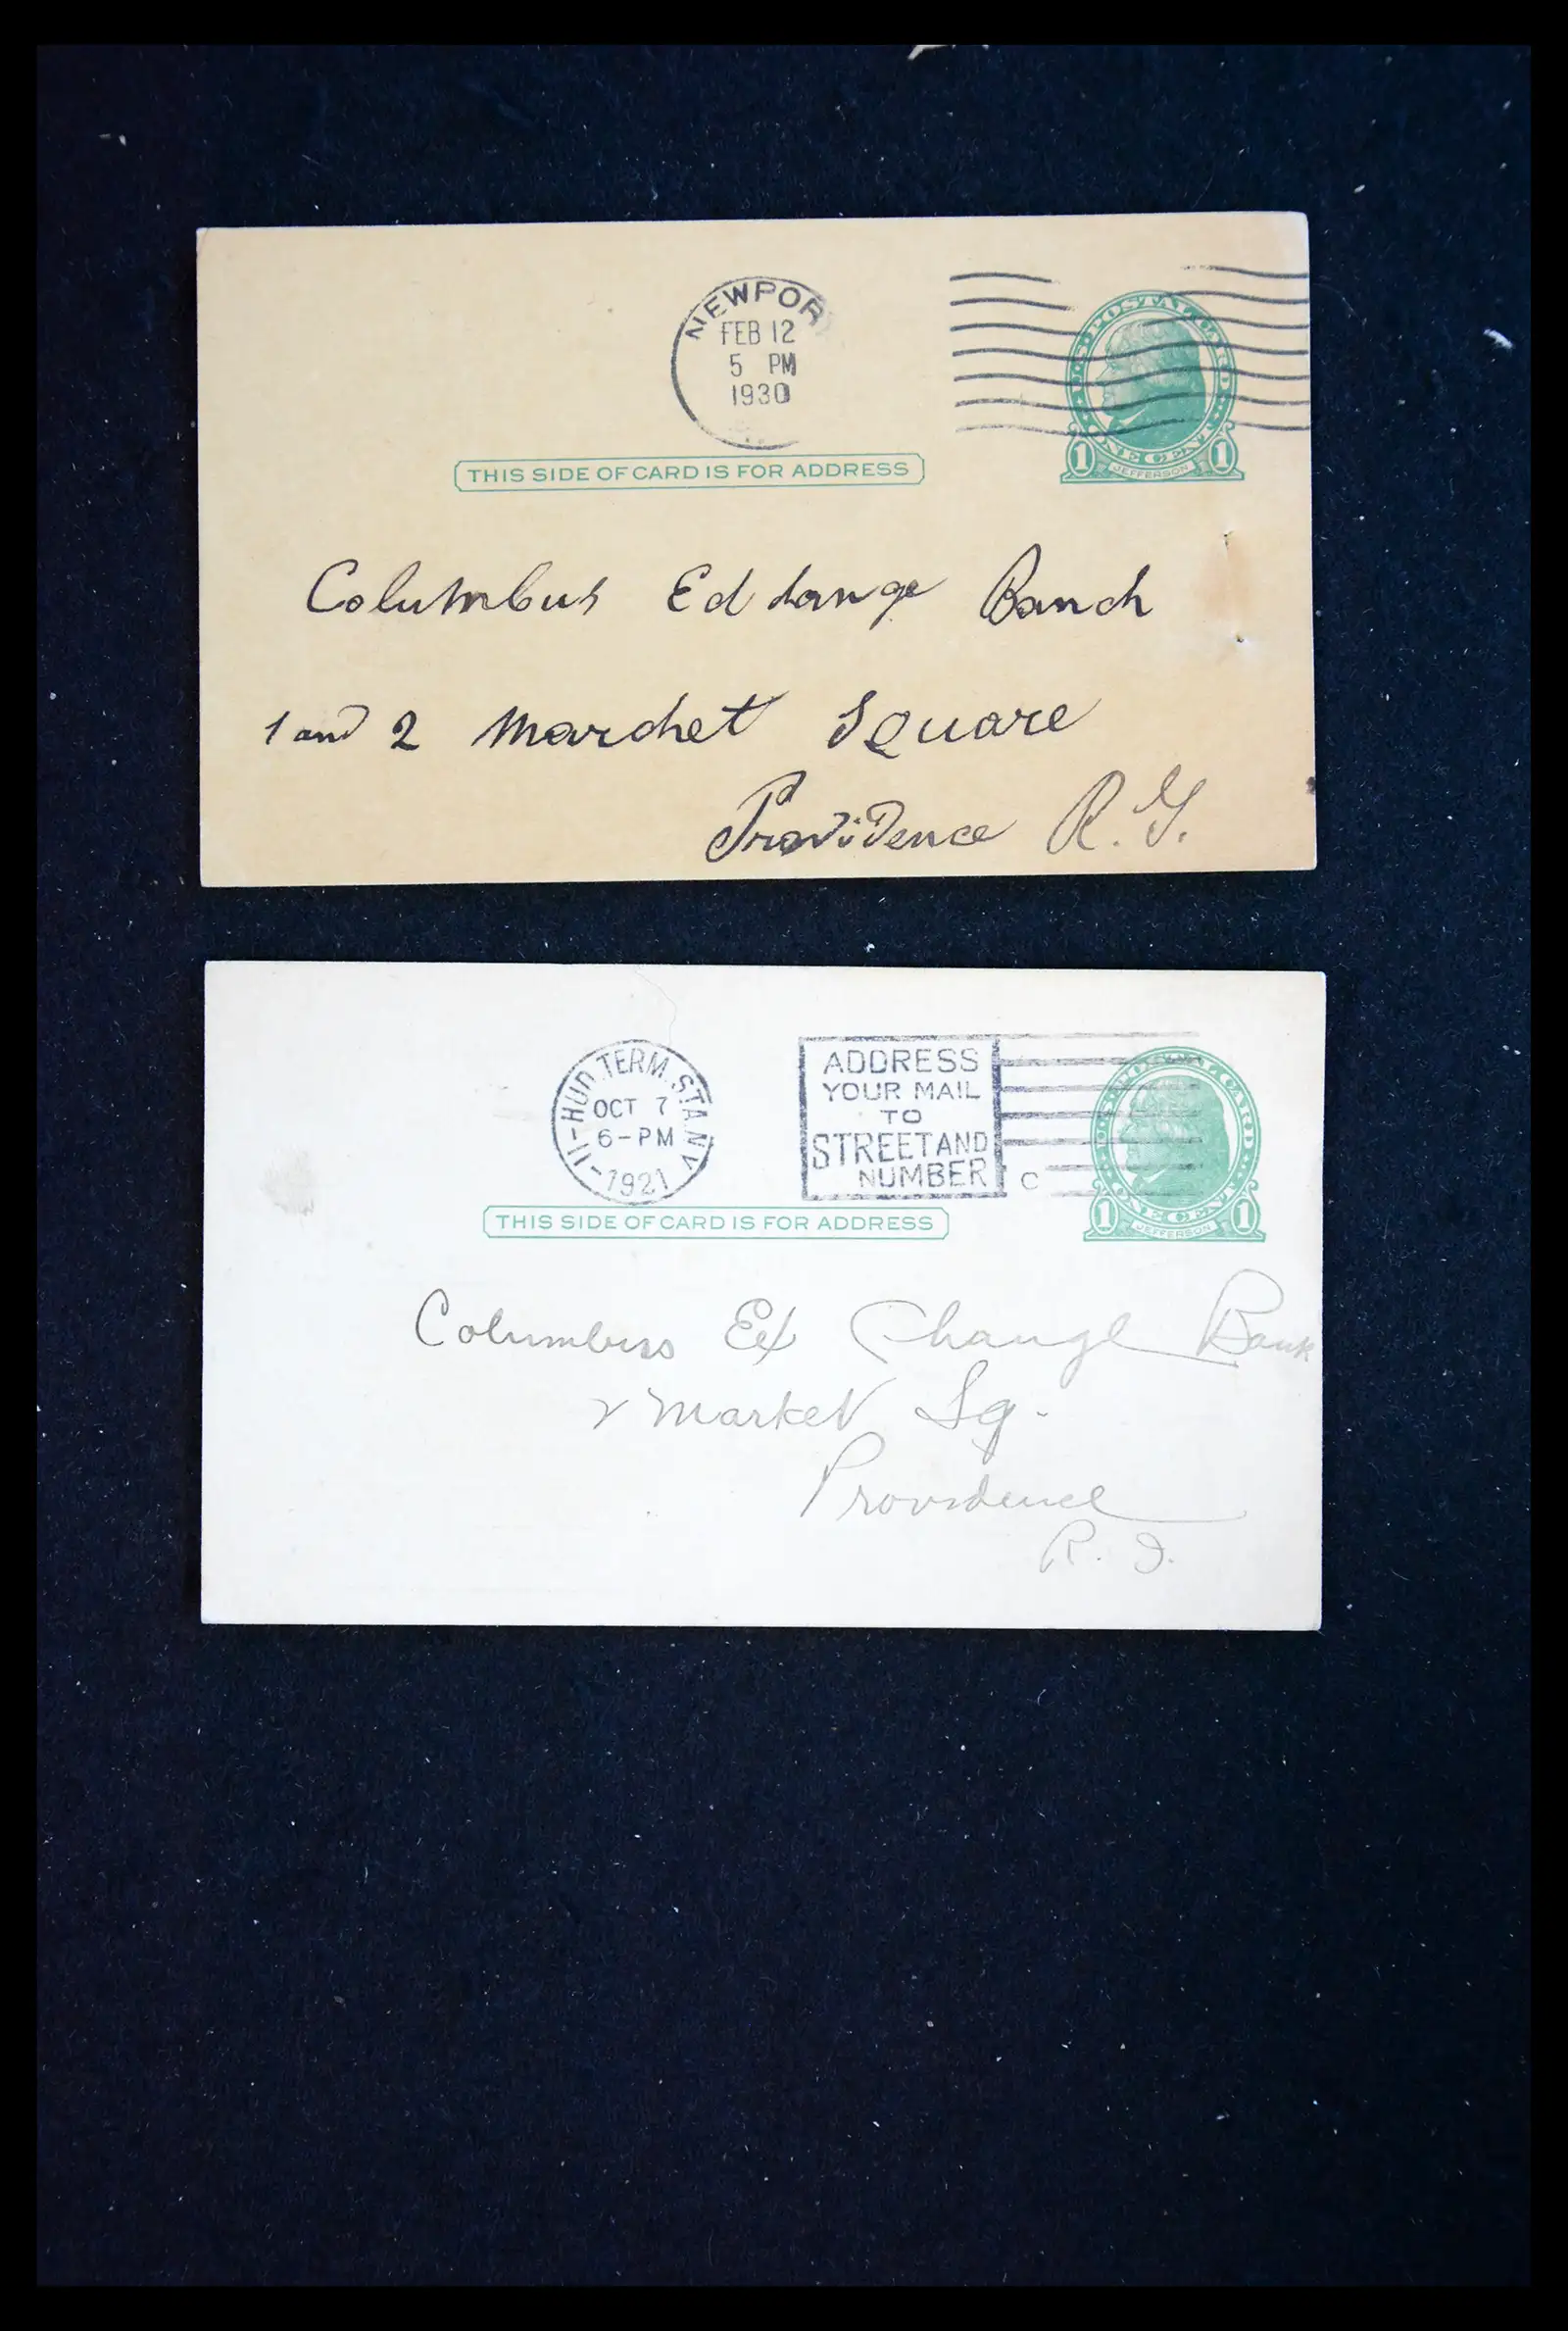 NEWPOR
FEB 12
5 PM
1930
U·S·POSTAL CARD
ONE CENT
1 JEFFERSON 1
THIS SIDE OF CARD IS FOR ADDRESS
Columbus Edchange Banch
1 and 2 Marchet Square
Providence R.I.
HUD. TERM. STA. N.Y.
OCT 7
6-PM
1921
11
ADDRESS
YOUR MAIL
TO
STREET AND
NUMBER
C
U·S·POSTAL CARD
ONE CENT
1 JEFFERSON 1
THIS SIDE OF CARD IS FOR ADDRESS
Columbus Ex Change Bank
2 Market Sq.
Providence
R. I.